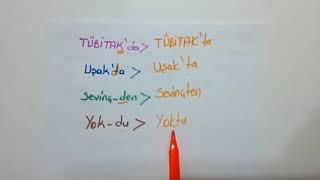 TÜBİTAK'da > TÜBİTAK'ta
Uşak'da > Uşak'ta
Sevinç-den > Sevinçten
Yok-du > Yoktu